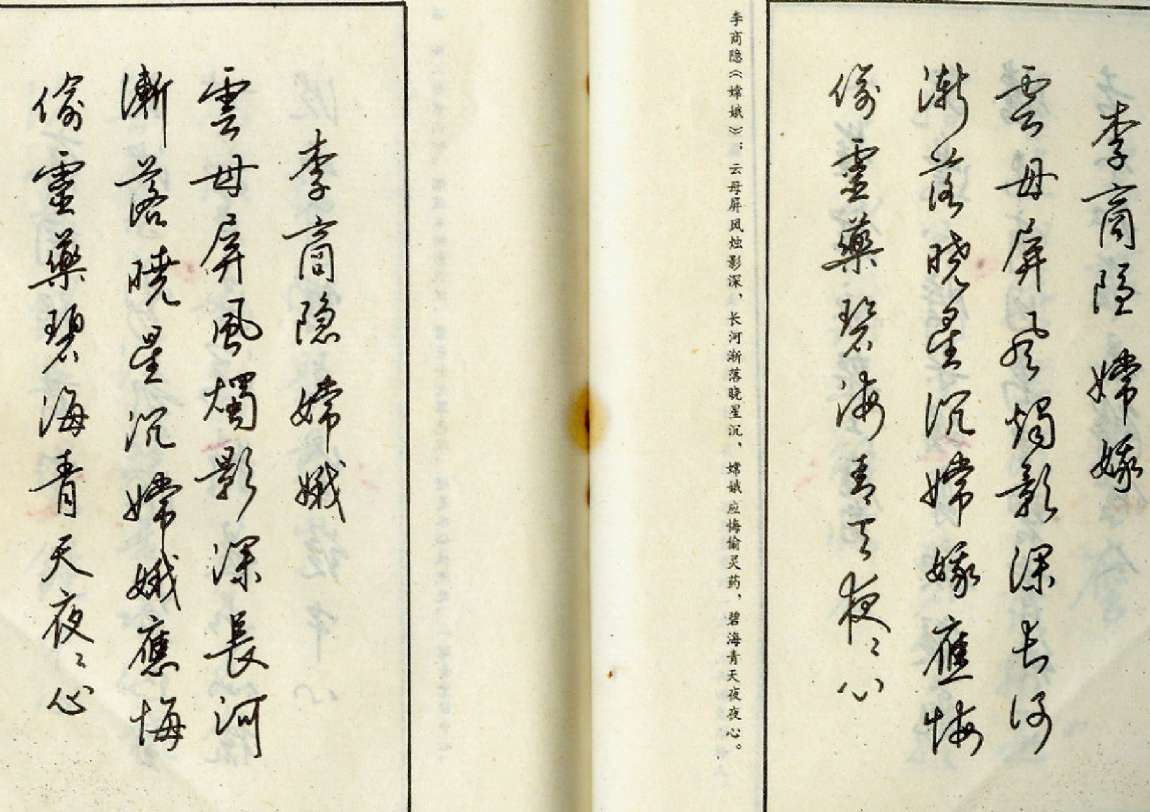 李商隐 嫦娥
雲母屏風燭影深長河
漸落曉星沉嫦娥應悔
偷靈藥碧海青天夜〻心
李商隐《嫦娥》：云母屏风烛影深，长河渐落晓星沉。嫦娥应悔偷灵药，碧海青天夜夜心。
李商隐 嫦娥
雲母屏風燭影深長河
漸落曉星沉嫦娥應悔
偷靈藥碧海青天夜〻心